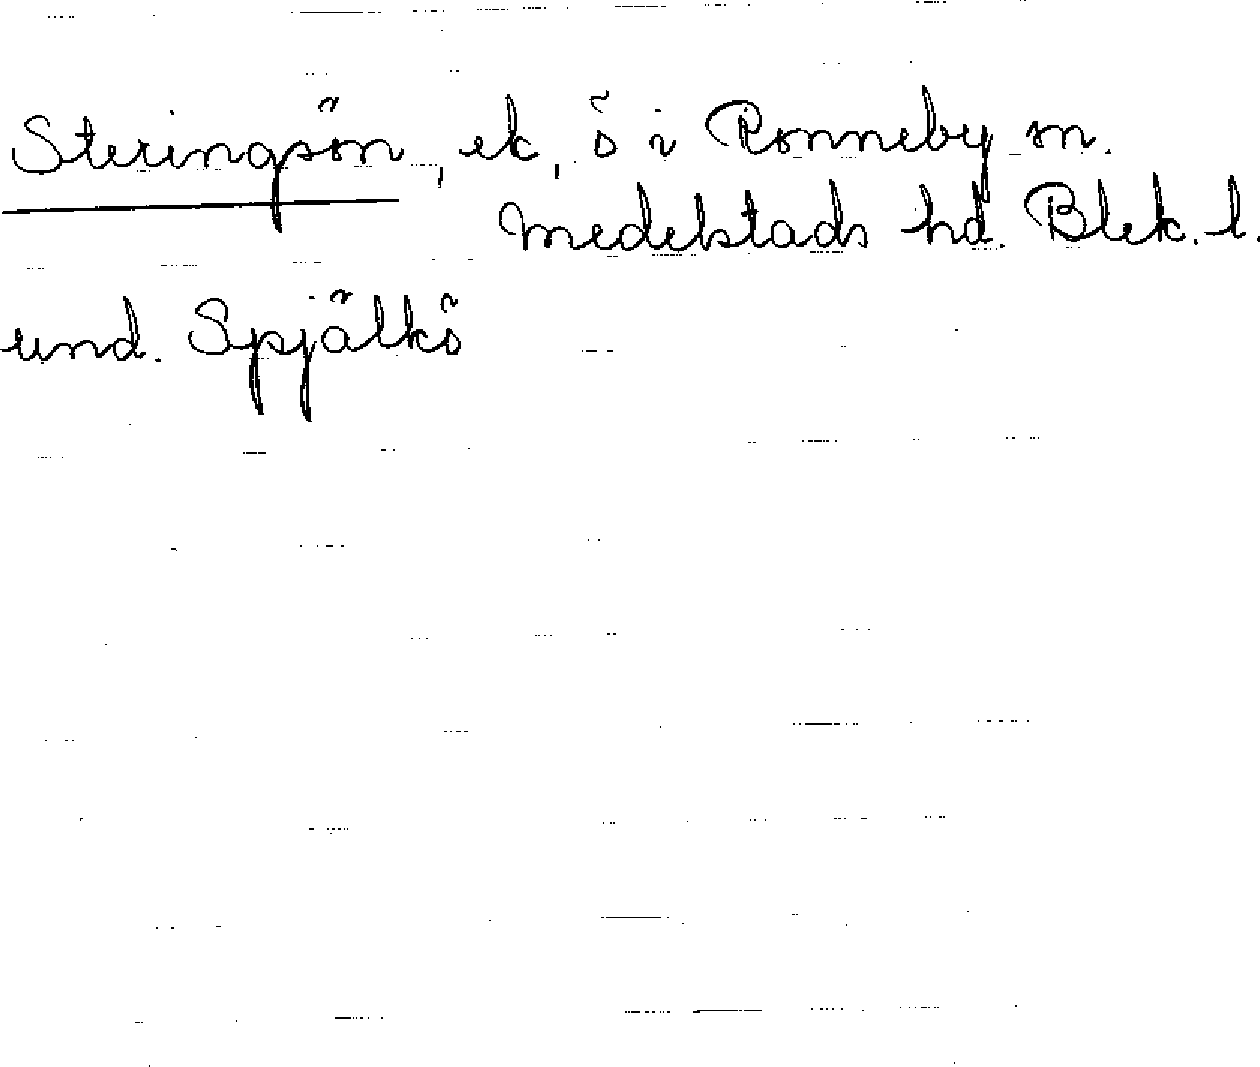 Steringsön, ek, ö i Ronneby sn.
Medelstads hd. Blek. l.
und. Spjälkö